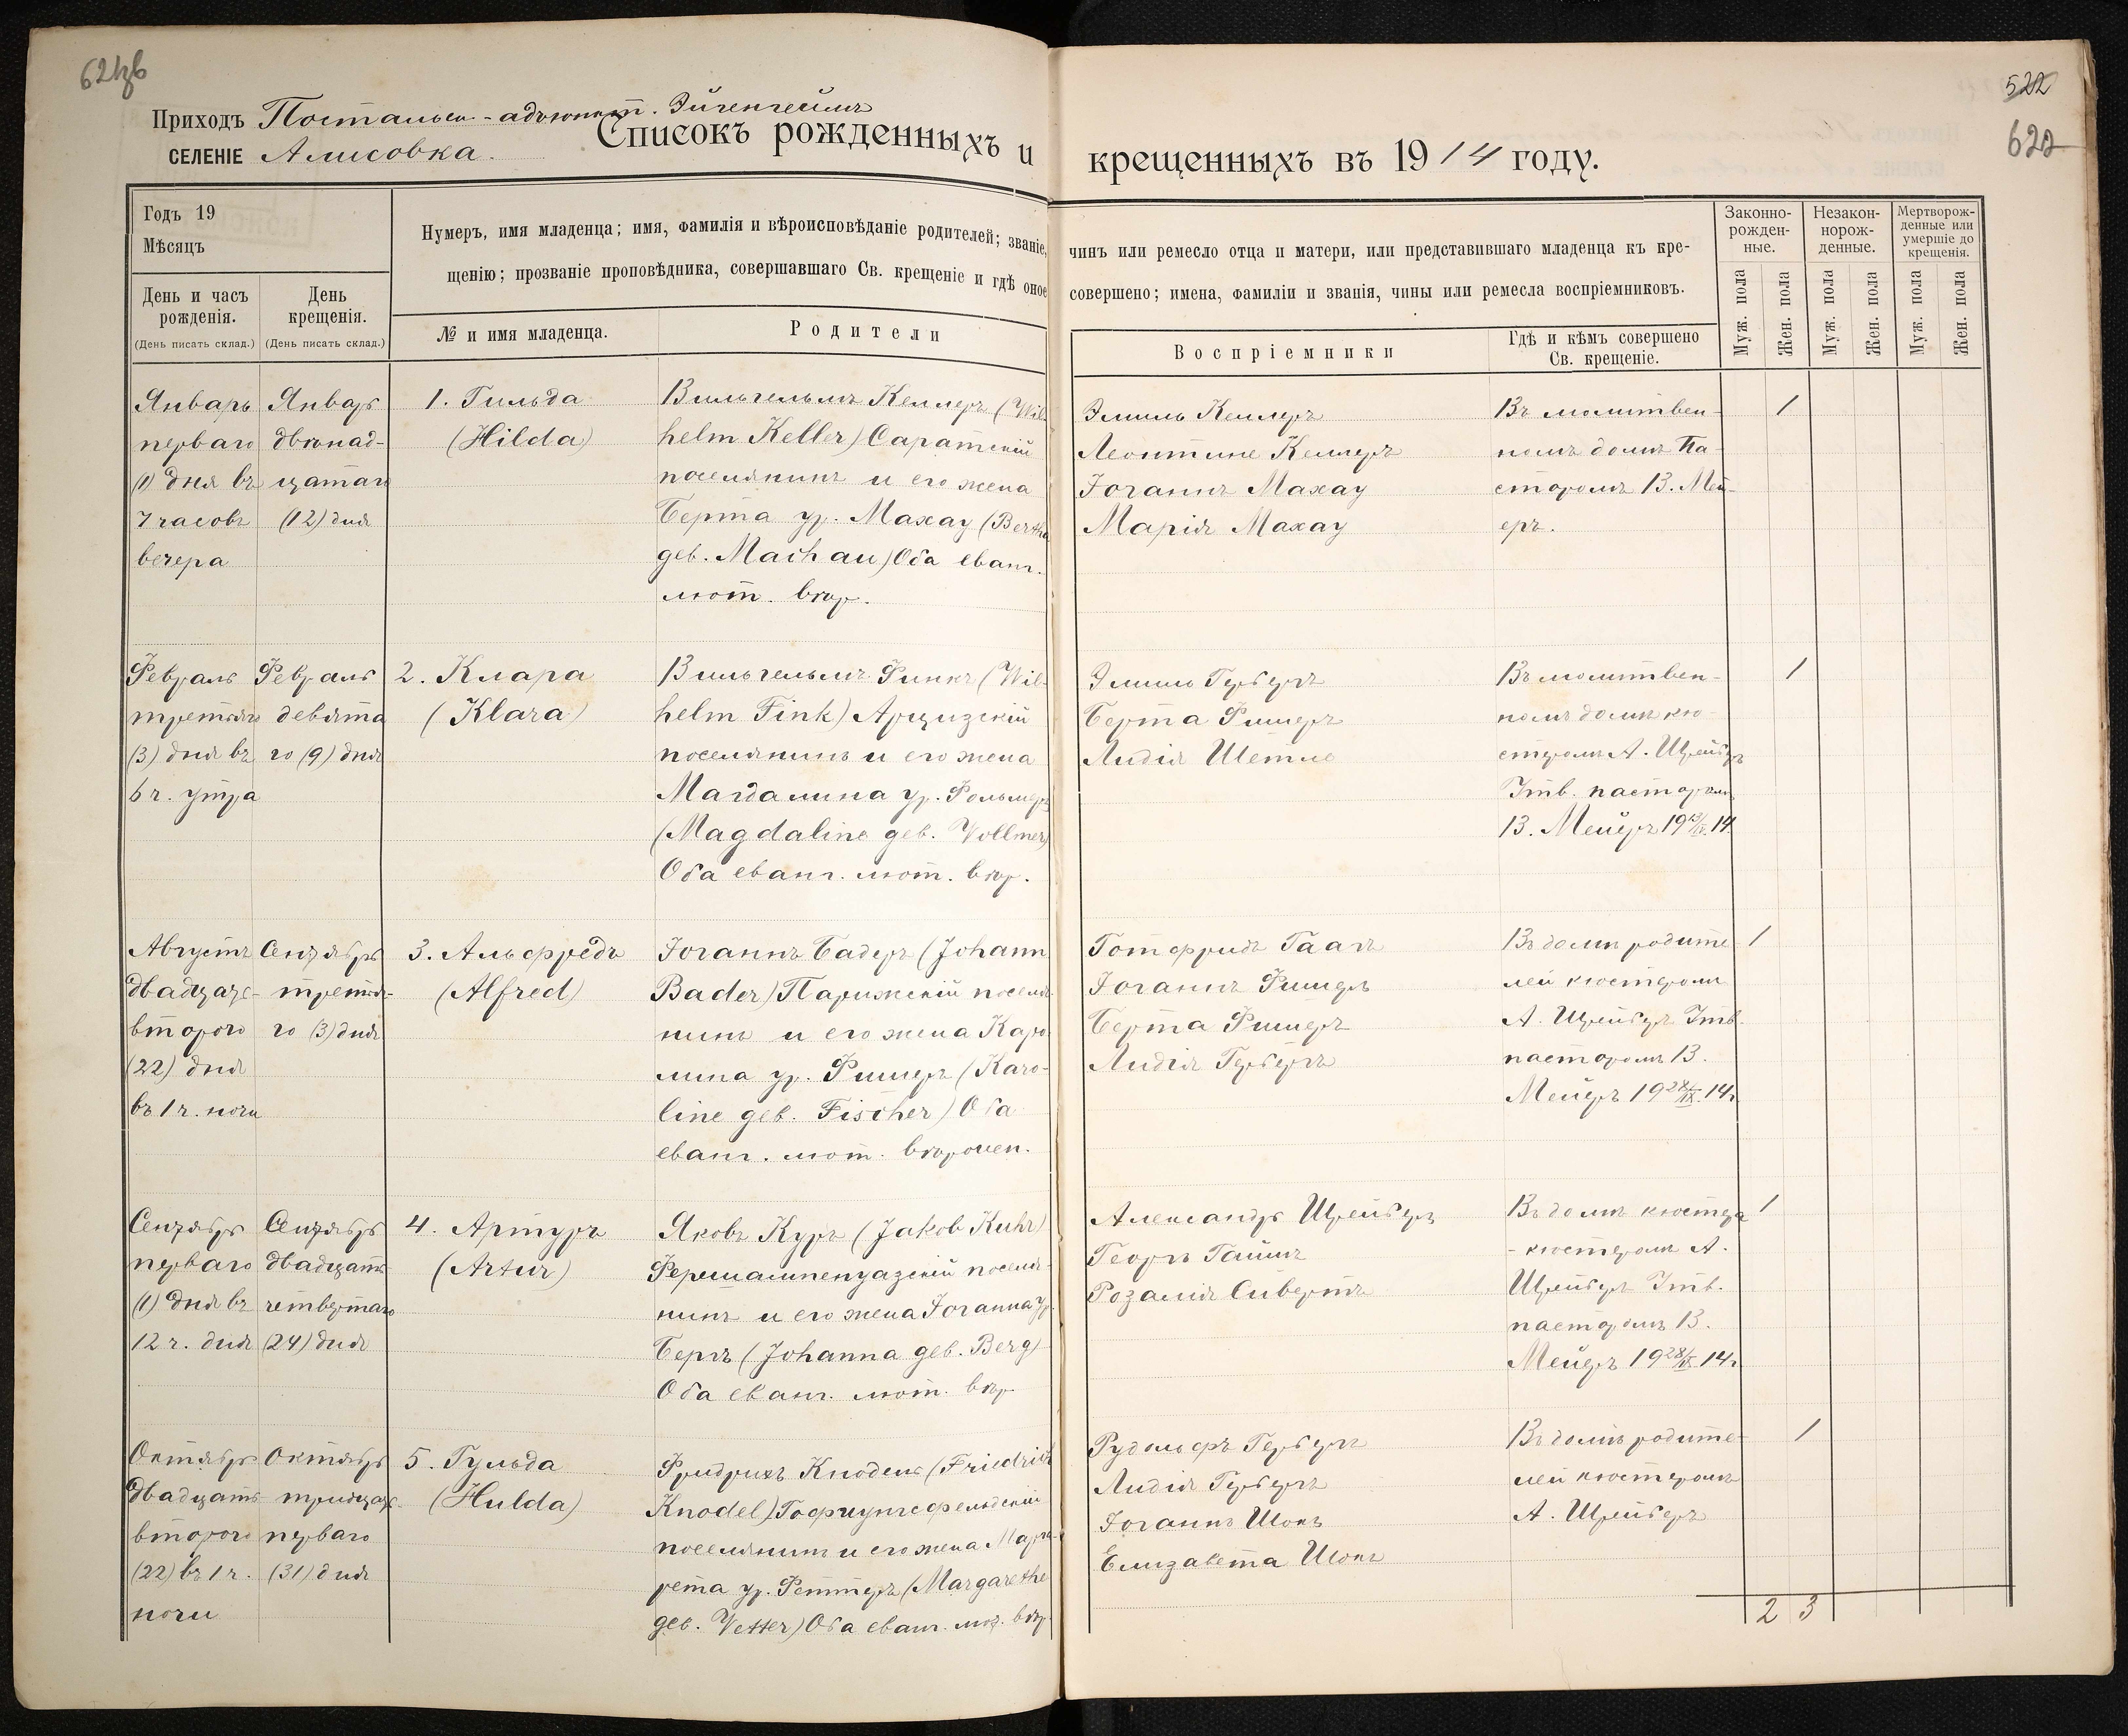 522
622
Приходъ Постальск.-адъюнкт. Эйгенгеймъ
СЕЛЕНІЕ Алисовка.
Списокъ рожденныхъ и крещенныхъ въ 1914 году.
Годъ 19
Мѣсяцъ
День и часъ рожденія.
(День писать склад.)
День крещенія.
(День писать склад.)
Нумеръ, имя младенца; имя, фамилія и вѣроисповѣданіе родителей; званіе, чинъ или ремесло отца и матери, или представившаго младенца къ кре-
щенію; прозваніе проповѣдника, совершавшаго Св. крещеніе и гдѣ оное совершено; имена, фамиліи и званія, чины или ремесла воспріемниковъ.
№ и имя младенца.
Родители
Воспріемники
Гдѣ и кѣмъ совершено
Св. крещеніе.
Законно-
рожден-
ные.
Незакон-
норож-
денные.
Мертворож-
денные или
умершіе до
крещенія.
Муж. пола
Жен. пола
Муж. пола
Жен. пола
Муж. пола
Жен. пола
Январь
перваго
(1) дня въ
7 часовъ
вечера
Январь
двѣнад-
цатаго
(12) дня
1. Гильда
(Hilda)
Вильгельмъ Келлеръ (Wil-
helm Keller) Саратскій
поселянинъ и его жена
Берта ур. Махау (Bertha
geb. Machau) Оба еванг.
лют. вѣр.
Эмиль Келлеръ
Леонтине Келлеръ
Іоганнъ Махау
Марія Махау
Въ молитвен-
номъ домѣ Па-
сторомъ В. Мей-
еръ.
1
Февраль
третьяго
(3) дня въ
6 ч. утра
Февраль
девята
го (9) дня
2. Клара
(Klara)
Вильгельмъ Финкъ (Wil-
helm Fink) Арцизскій
поселянинъ и его жена
Магдалина ур. Фольмеръ
(Magdaline geb. Vollmer)
Оба еванг. лют. вѣр.
Эмиль Герберъ
Берта Фишеръ
Лидія Шетле
Въ молитвен-
номъ домѣ кю-
стеромъ А. Шрейберъ
Утв. пасторомъ
В. Мейеръ 19 14
1
Августъ
двадцать
второго
(22) дня
въ 1 ч. ночи
Сентябрь
третья-
го (3) дня
3. Альфредъ
(Alfred)
Іоганнъ Бадеръ (Johann
Bader) Парижскій поселя-
нинъ и его жена Каро-
лина ур. Фишеръ (Karo-
line geb. Fischer) Оба
еванг. лют. вѣроисп.
Готфридъ Гаагъ
Іоганнъ Фишеръ
Берта Фишеръ
Лидія Герберъ
Въ домѣ родите-
лей кюстеромъ
А. Шрейберъ Утв.
пасторомъ В.
Мейеръ 19 28/IX 14 г.
1
Сентябрь
перваго
(1) дня въ
12 ч. дня
Сентябрь
двадцать
четвертаго
(24) дня
4. Артуръ
(Artur)
Яковъ Куръ (Jakob Kuhr)
Фершампенуазскій поселя-
нинъ и его жена Іоганна ур.
Бергъ (Johanna geb. Berg)
Оба еванг. лют. вѣр.
Александръ Шрейберъ
Георгъ Гаймъ
Розалія Сивертъ
Въ домѣ кюстера
- кюстеромъ А.
Шрейберъ Утв.
пасторомъ В.
Мейеръ 19 28/IX 14 г.
1
Октябрь
двадцать
второго
(22) въ 1 ч.
ночи
Октябрь
тридцать
перваго
(31) дня
5. Гульда
(Hulda)
Фридрихъ Кнодель (Friedrich
Knodel) Гофнунгсфельдскій
поселянинъ и его жена Марга-
рета ур. Феттеръ (Margarethe
geb. Vetter) Оба еванг. лют. вѣр.
Рудольфъ Герберъ
Лидія Герберъ
Іоганнъ Шокъ
Елизавета Шокъ
Въ домѣ родите-
лей кюстеромъ
А. Шрейберъ
1
2 3